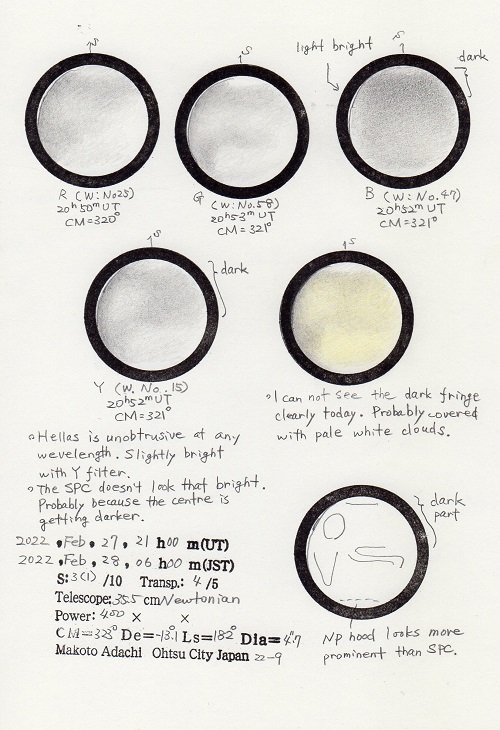 S
S
S
light bright
dark
R (W:No25)
20h50mUT
CM=320°
G (W:No.58)
20h53mUT
CM=321°
B (W:No.47)
20h52mUT
CM=321°
S
S
dark
Y (W.No.15)
20h52mUT
CM=321°
I can not see the dark fringe
clearly today. Probably covered
with pale white clouds.
Hellas is unobtrusive at any
wevelength. Slightly bright
with Y filter.
The SPC doesn't look that bright.
Probably because the centre is
getting darker.
dark
part
2022, Feb, 27, 21 h00 m(UT)
2022, Feb, 28, 06 h00 m(JST)
S:3(1)/10 Transp.: 4/5
Telescope:35.5 cm Newtonian
Power: 400 × ×
CM=323° De=-13.1 Ls=182° Dia=4".7
Makoto Adachi Ohtsu City Japan 22-9
Np hood looks more
prominent than SPC.